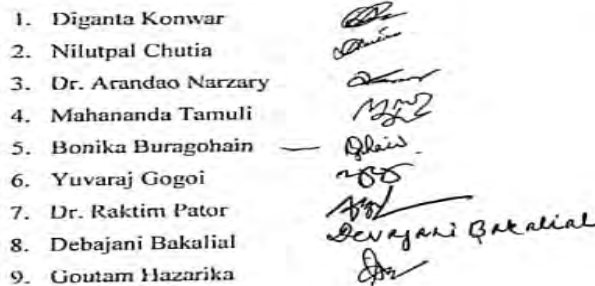 1. Diganta Konwar
2. Nilutpal Chutia
3. Dr. Arandao Narzary
4. Mahananda Tamuli
5. Bonika Buragohain —
6. Yuvaraj Gogoi
7. Dr. Raktim Pator
8. Debajani Bakalial Devajani Bakalial
9. Goutam Hazarika